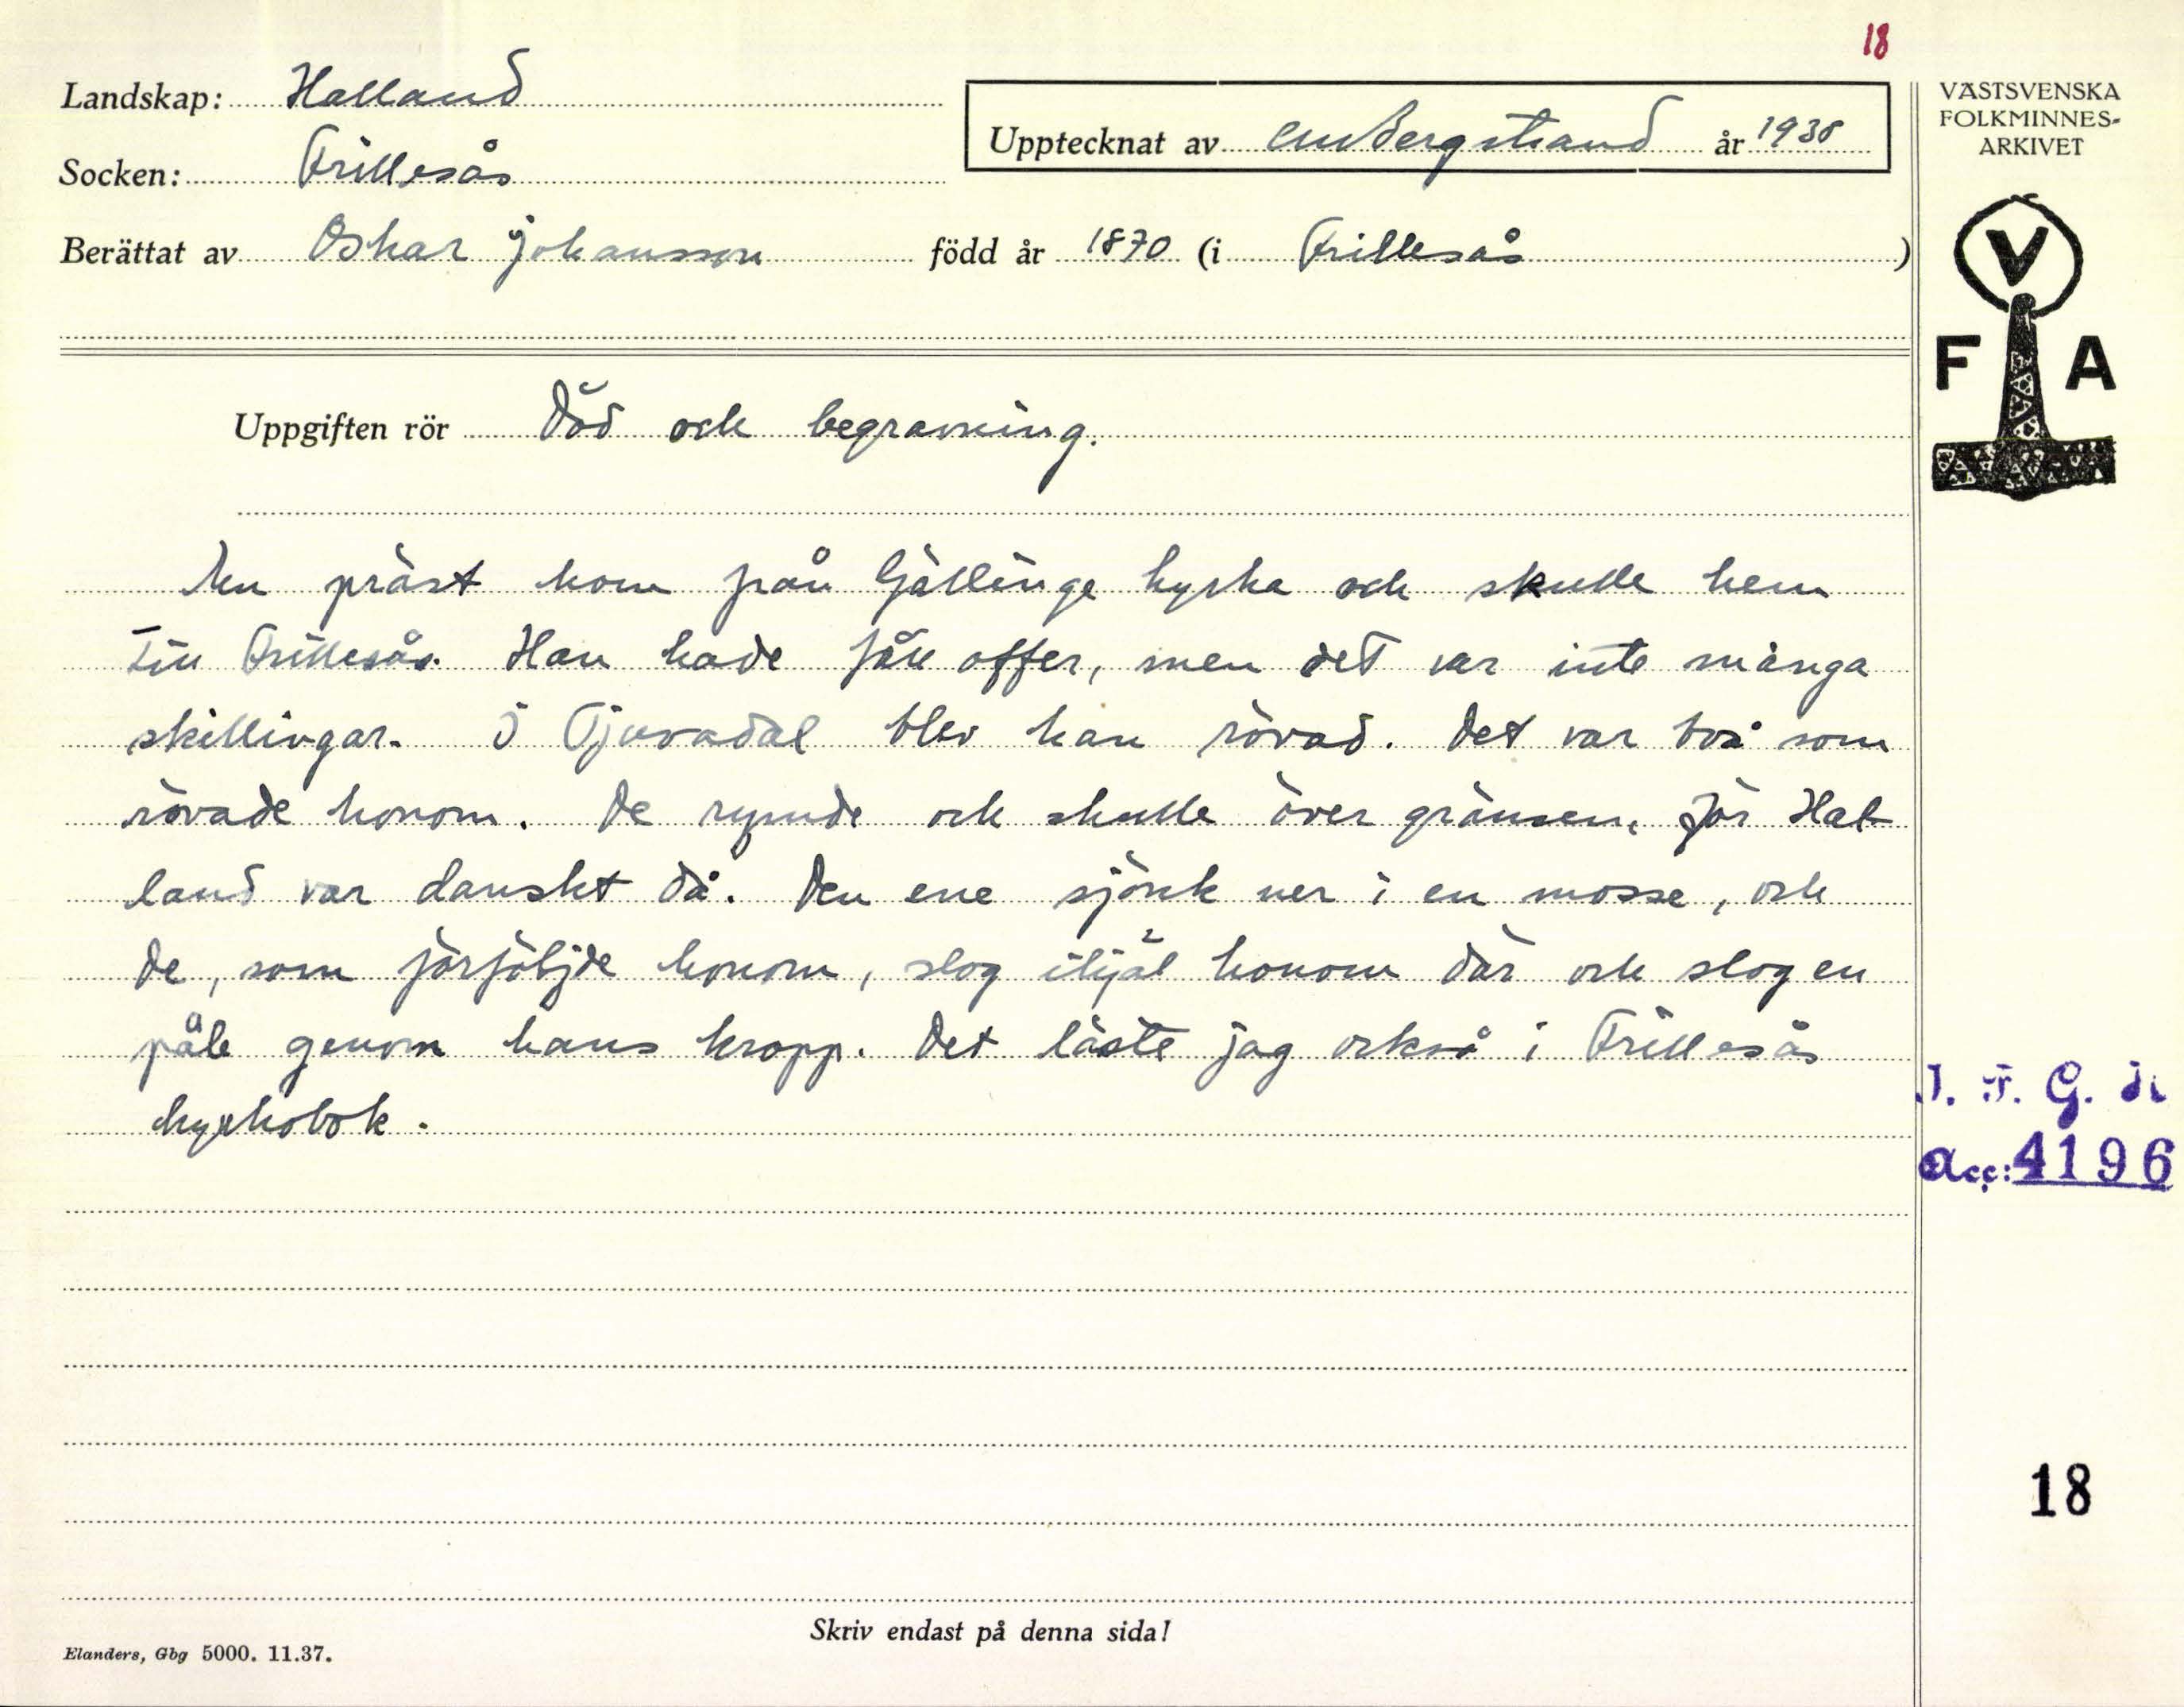 18
Landskap: Halland
Upptecknat av CM Bergstrand år 1938
VÄSTSVENSKA
FOLKMINNES-
ARKIVET
Socken: Frillesås
Berättat av Oskar Johansson född år 1870 (i Frillesås)
V
F A
Uppgiften rör Död och begravning.
En präst kom från Gällinge kyrka och skulle hem
till Frillesås. Han hade fått offer, men det var inte många
skillingar. I Tjuvadal blev han rövad. Det var två som
rövade honom. De rymde och skulle över gränsen, för Hal-
land var danskt då. Den ene sjönk ner i en mosse, och
de, som förföljde honom, slog ihjäl honom där och slog en
påle genom hans kropp. Det läste jag också i Frillesås
kyrkobok.
I. F. G. s
acc: 4196
18
Skriv endast på denna sida!
Elanders, Gbg 5000. 11.37.